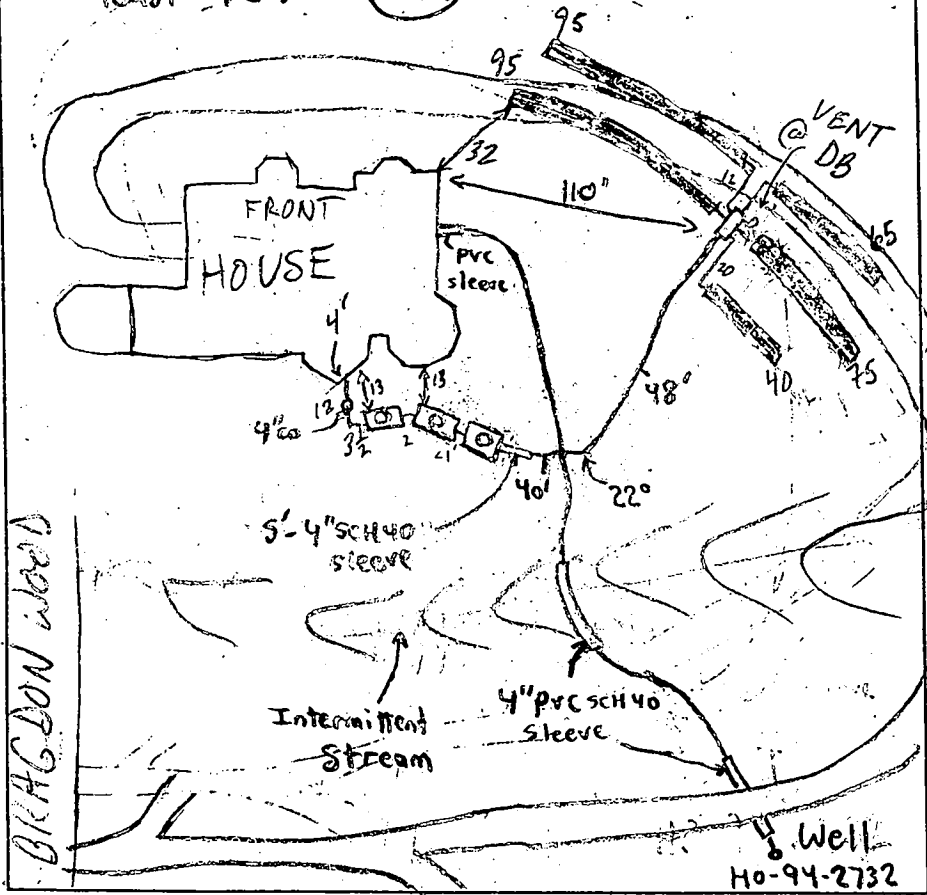 95
95
VENT
@ DB
32
110"
12
FRONT
HOUSE
PVC
sleeve
65
20
4'
13
13
40
75
48'
12
4"co
2
<1'
40'
22°
5'-4"SCH40
sleeve
BRAGDON WOOD
Intermittent
Stream
4"PVC SCH 40
Sleeve
Well
HO-94-2732